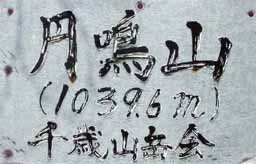 円鳴山
(1039.6m)
千歳山岳会